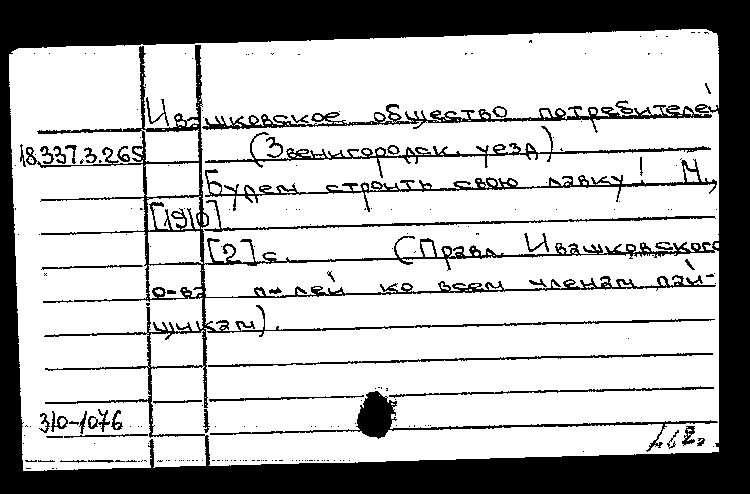 Ивашковское общество потребителей
18.337.3.265 (Звенигородск. уезд).
Будем строить свою лавку! М.,
[1910]
[2] с. (Правл. Ивашковского
о-ва п-лей ко всем членам пай-
щикам).
310-1076